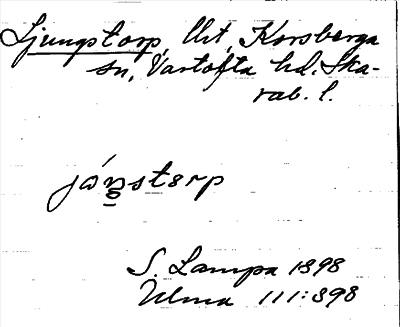 Ljungstorp, Utt, Korsberga
sn, Vartofta hd. Ska-
rab. l.
jáŋstorp
S. Lampa 1898
Ulma 111:398